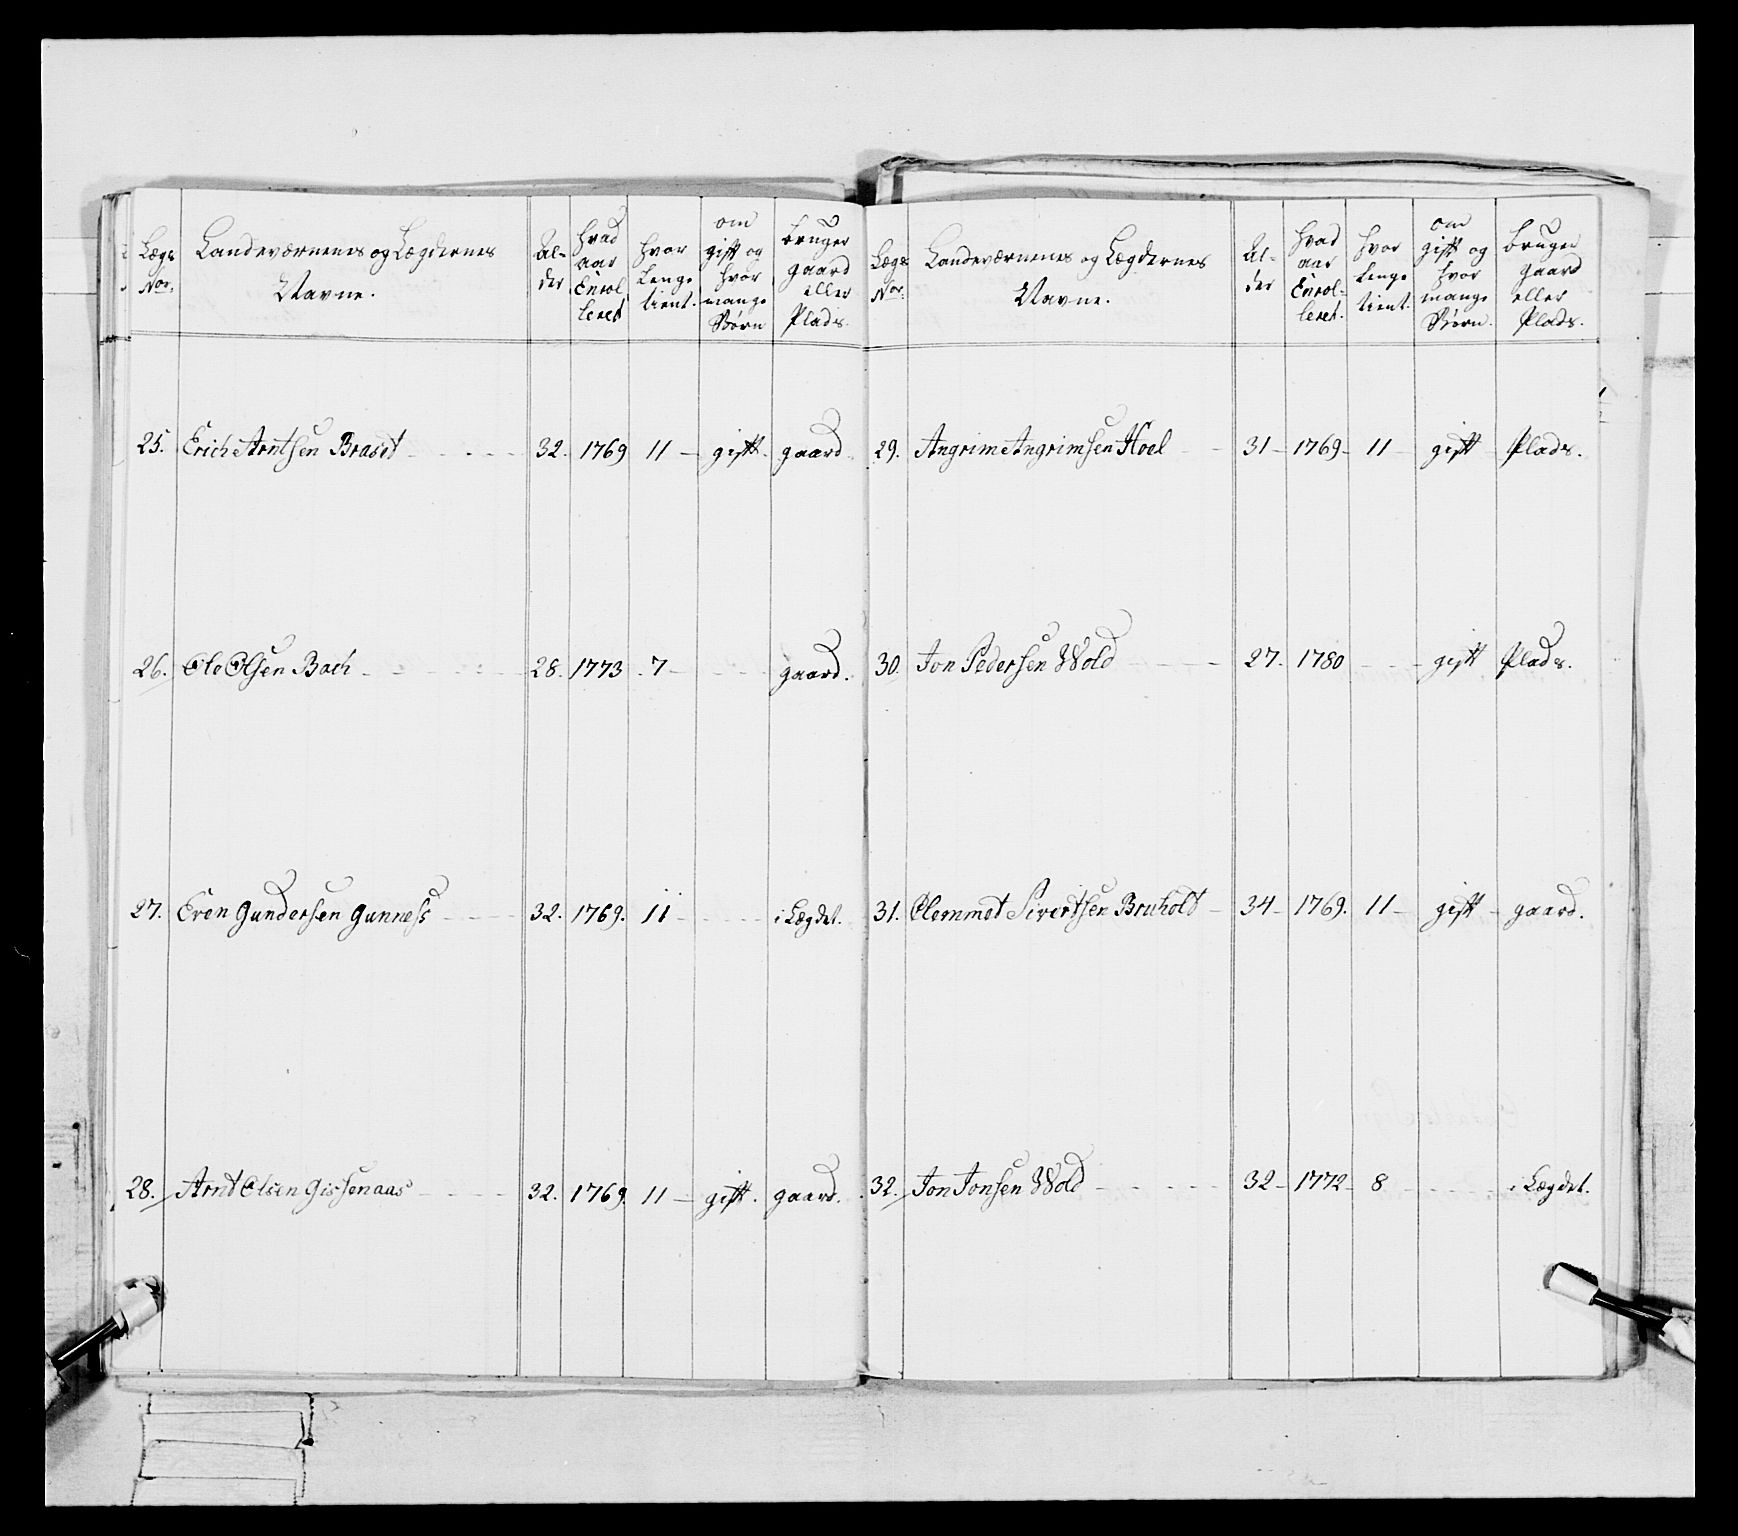 Lægs No. Landeværnenes og Lægdernes Navne. Al- der hvad aar Enrol- leret hvor lenge tient. om gift og hvor mange Børn bruger gaard eller Plads.
25. Erich Arntsen Braset 32. 1769 11 gift. gaard
26. Ole Olsen Bach 28. 1773. 7 gaard.
27. Even Gundersen Gunness 32. 1769. 11 i Lægdet.
28. Arnt Olsen Gissenaas 32. 1769. 11 gift. gaard.
Lægs No. Landeværnenes og Lægdernes Navne. Al- der hvad aar Enrol- leret. hvor lenge tient. om gift og hvor mange Børn. bruger gaard eller Plads.
29. Angrim Angrimsen Hoel 31 1769 11 gift Plads.
30. Jon Pedersen Wold 27. 1780 gift Plads.
31. Clemmet Sivertsen Bruholt 34 1769. 11 gift gaard.
32. Jon Jonsen Wold 32 1772 8 i Lægdet.